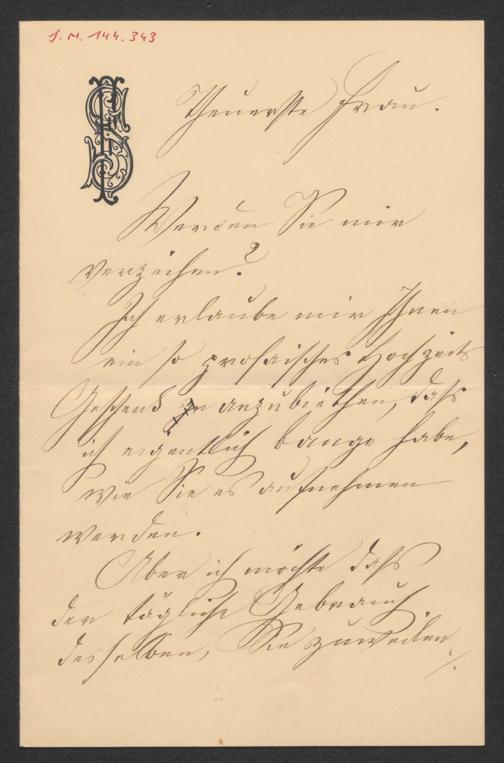 I. N. 144.343
Theuerste Frau.
Werden Sie mir
verzeihen?
Ich erlaube mir Ihnen
ein so prosaisches Hochzeits
Geschenk anzubiethen, daß
ich eigentlich bange habe,
wie Sie es aufnehmen
werden.
Aber ich möchte daß
der tägliche Gebrauch
desselben, Sie zuweilen
./.